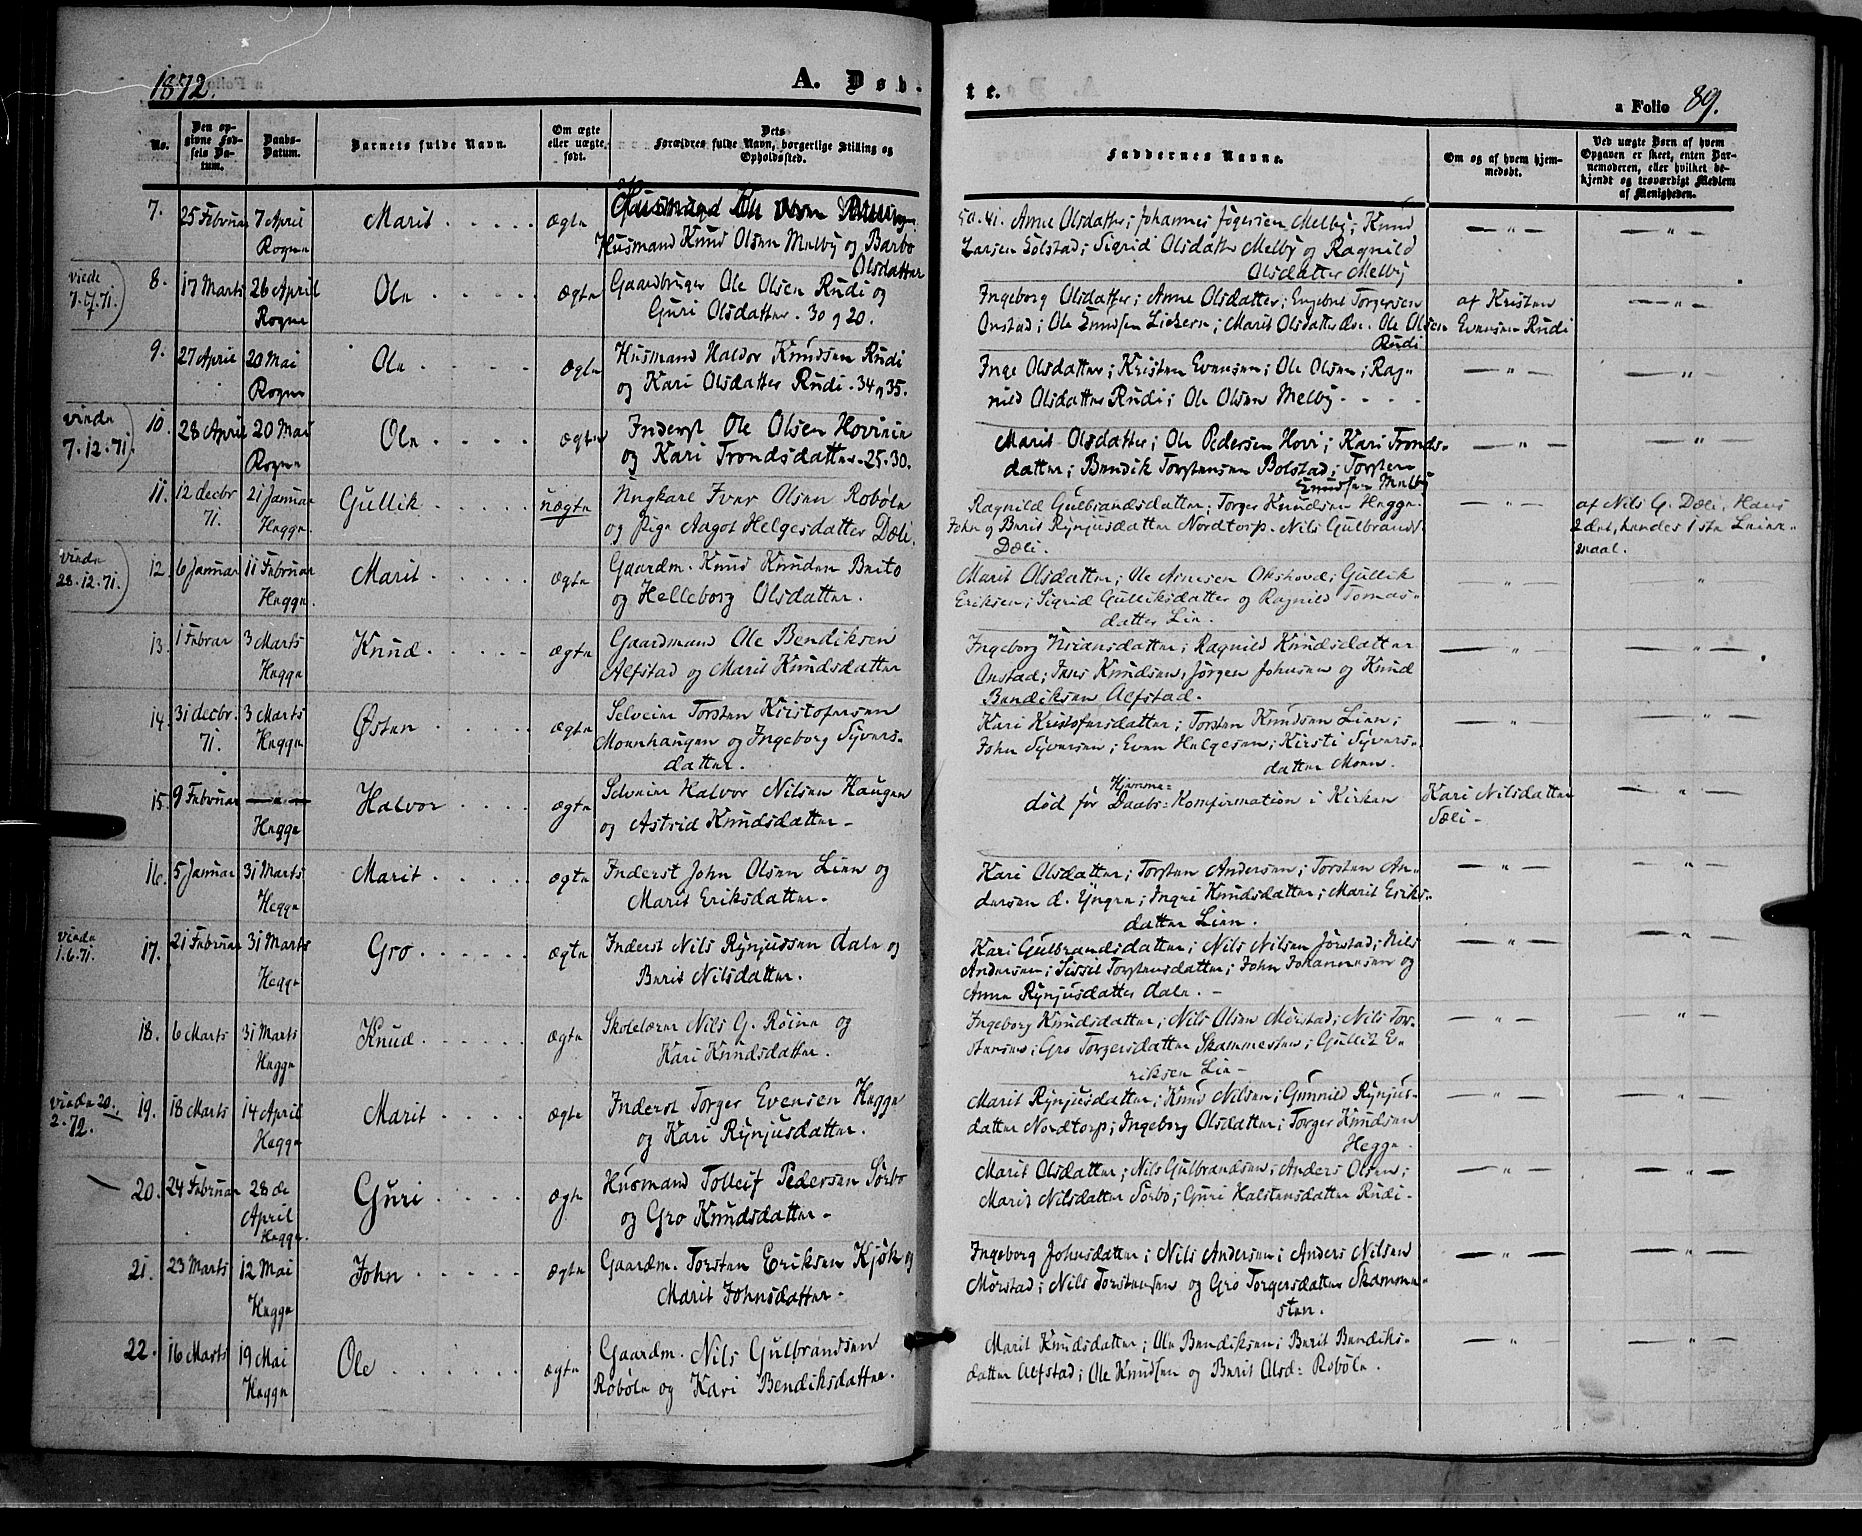 1872.
A. Døb-
te.
a Folio 89.
No.
Den op-
givne Fød-
sels Da-
tum.
Daabs-
Datum.
Barnets fulde Navn.
Om ægte
eller uægte
født.
Dets
Forældres fulde Navn, borgerlige Stilling og
Opholdssted.
Faddernes Navne.
Om og af hvem hjem-
medøbt.
Ved uægte Børn af hvem
Opgaven er skeet, enten Bar-
nemoderen, eller hvilket be-
kjendt og troværdigt Medlem
af Menigheden.
7.
25 Februar
7 April
Rogne
Marit
ægte
Husmand Knud Olsen Melby og Barbo
Olsdatter
50. 41. Anne Olsdatter; Johannes Jøgersen Melby; Knud
Larsen Sølstad; Sigrid Olsdatter Melby og Ragnild
Olsdatter Melby
viede
7.7.71.
8.
17 Marts
26 April
Rogne
Ole
ægte
Gaardbruger Ole Olsen Rudi og
Guri Olsdatter. 30 og 20.
Ingeborg Olsdatter; Anne Olsdatter; Engebret Torgersen
Onstad; Ole Knudsen Liekern; Marit Olsdatter Øve. Ole Olsen
Rudi
af Kristen
Evensen Rudi
9.
27 April
20 Mai
Rogne
Ole
ægte
Husmand Haldor Knudsen Rudi
og Kari Olsdatter Rudi. 34 og 35.
Inge Olsdatter; Kristen Evensen; Ole Olsen; Rag-
nild Olsdatter Rudi; Ole Olsen Melby
viede
7.12.71.
10.
28 April
20 Mai
Rogne
Ole
ægte
Inderst Ole Olsen Hovieie
og Kari Trondsdatter. 25. 30.
Marit Olsdatter; Ole Pedersen Hovi; Kari Tronds-
datter; Bendik Torstensen Bolstad; Torsten
Knudsen Melby
11.
12 decbr
71.
21 Januar
Hegge
Gullik
uægte
Ungkarl Iver Olsen Robøle
og Pige Aagot Helgesdatter Dæli.
Ragnild Gulbrandsdatter; Torger Knudsen Hegge.
John og Berit Rynjusdatter Nordtorp. Nils Gulbrands
Dæli.
af Nils G. Dæli. Hans
2det, hendes 1ste Leier-
maal.
viede
28.12.71.
12.
6 Januar
11 Februar
Hegge.
Marit
ægte
Gaardm. Knud Knudsen Beito
og Helleborg Olsdatter.
Marit Olsdatter; Ole Arnesen Okshovd; Gullik
Eriksen; Sigrid Gulliksdatter og Ragnild Tomas-
datter Lien.
13.
1 Febrar
3 Marts
Hegge
Knud
ægte
Gaardmand Ole Bendiksen
Alfstad og Marit Knudsdatter
Ingeborg Iversdatter; Ragnild Knudsdatter
Onstad; Iver Knudsen; Jørgen Johnsen og Knud
Bendiksen Alfstad.
14.
31 decbr.
71.
3 Marts
Hegge
Østen
ægte
Selveier Torsten Kristofersen
Moenhaugen og Ingeborg Syvers-
datter.
Kari Kristofersdatter; Torsten Knudsen Lien;
John Syversen; Even Helgesen; Kirsti Syvers-
datter Moen.
15.
9 Februar
Hegge
Halvor
ægte
Selveier Halvor Nilsen Haugen
og Astrid Knudsdatter -
Hjemme-
død før Daabs-Konfirmation i Kirken
Kari Nilsdatter
Dæli -
16.
5 Januar
31 Marts
Hegge
Marit
ægte
Inderst John Olsen Lien og
Marit Eriksdatter.
Kari Olsdatter; Torsten Andersen; Torsten An-
dersen d. Yngre; Ingri Knudsdatter; Marit Eriks-
datter Lien.
viede
1.6.71.
17.
21 Februar
31 Marts
Hegge
Gro
ægte
Inderst Nils Rynjussen Dale og
Berit Nilsdatter.
Kari Gulbrandsdatter; Nils Nilsen Jørstad; Nils
Andersen; Sissel Torstensdatter; John Johannesen og
Anne Rynjusdatter Dale. -
18.
6 Marts
31 Marts
Hegge
Knud
ægte
Skolelærer Nils G. Røine og
Kari Knudsdatter.
Ingeborg Knudsdatter; Nils Olsen Mørstad; Nils Tor-
stensen; Gro Torgersdatter Skammesten; Gullik E-
riksen Lie -
viede 20.
2. 72.
19.
18 Marts
14 April
Hegge
Marit
ægte
Inderst Torger Evensen Hegge
og Kari Rynjusdatter.
Marit Rynjusdatter; Knud Nilsen; Gunnild Rynjus-
datter Nordtorp; Ingeborg Olsdatter; Torger Knudsen
Hegge.
20.
24 Februar
28 de
April
Hegge.
Guri
ægte
Husmand Tolleif Pedersen Sørbo
og Gro Knudsdatter -
Marit Olsdatter; Nils Gulbrandsen; Anders Olsen;
Marit Nilsdatter Sørbo; Guri Halstensdatter Rudi -
21.
23 Marts
12 Mai
Hegge
John
ægte
Gaardm. Torsten Eriksen Kjøk og
Marit Johnsdatter -
Ingeborg Johnsdatter; Nils Andersen; Anders Nilsen
Mørstad; Nils Torstensen og Gro Torgersdatter Skamme-
sten.
22.
16 Marts
19 Mai
Hegge
Ole
ægte
Gaardm. Nils Gulbrandsen
Robøle og Kari Bendiksdatter.
Marit Knudsdatter; Ole Bendiksen; Berit Bendiks-
datter Alfstad; Ole Knudsen og Berit Olsd: Robøle.